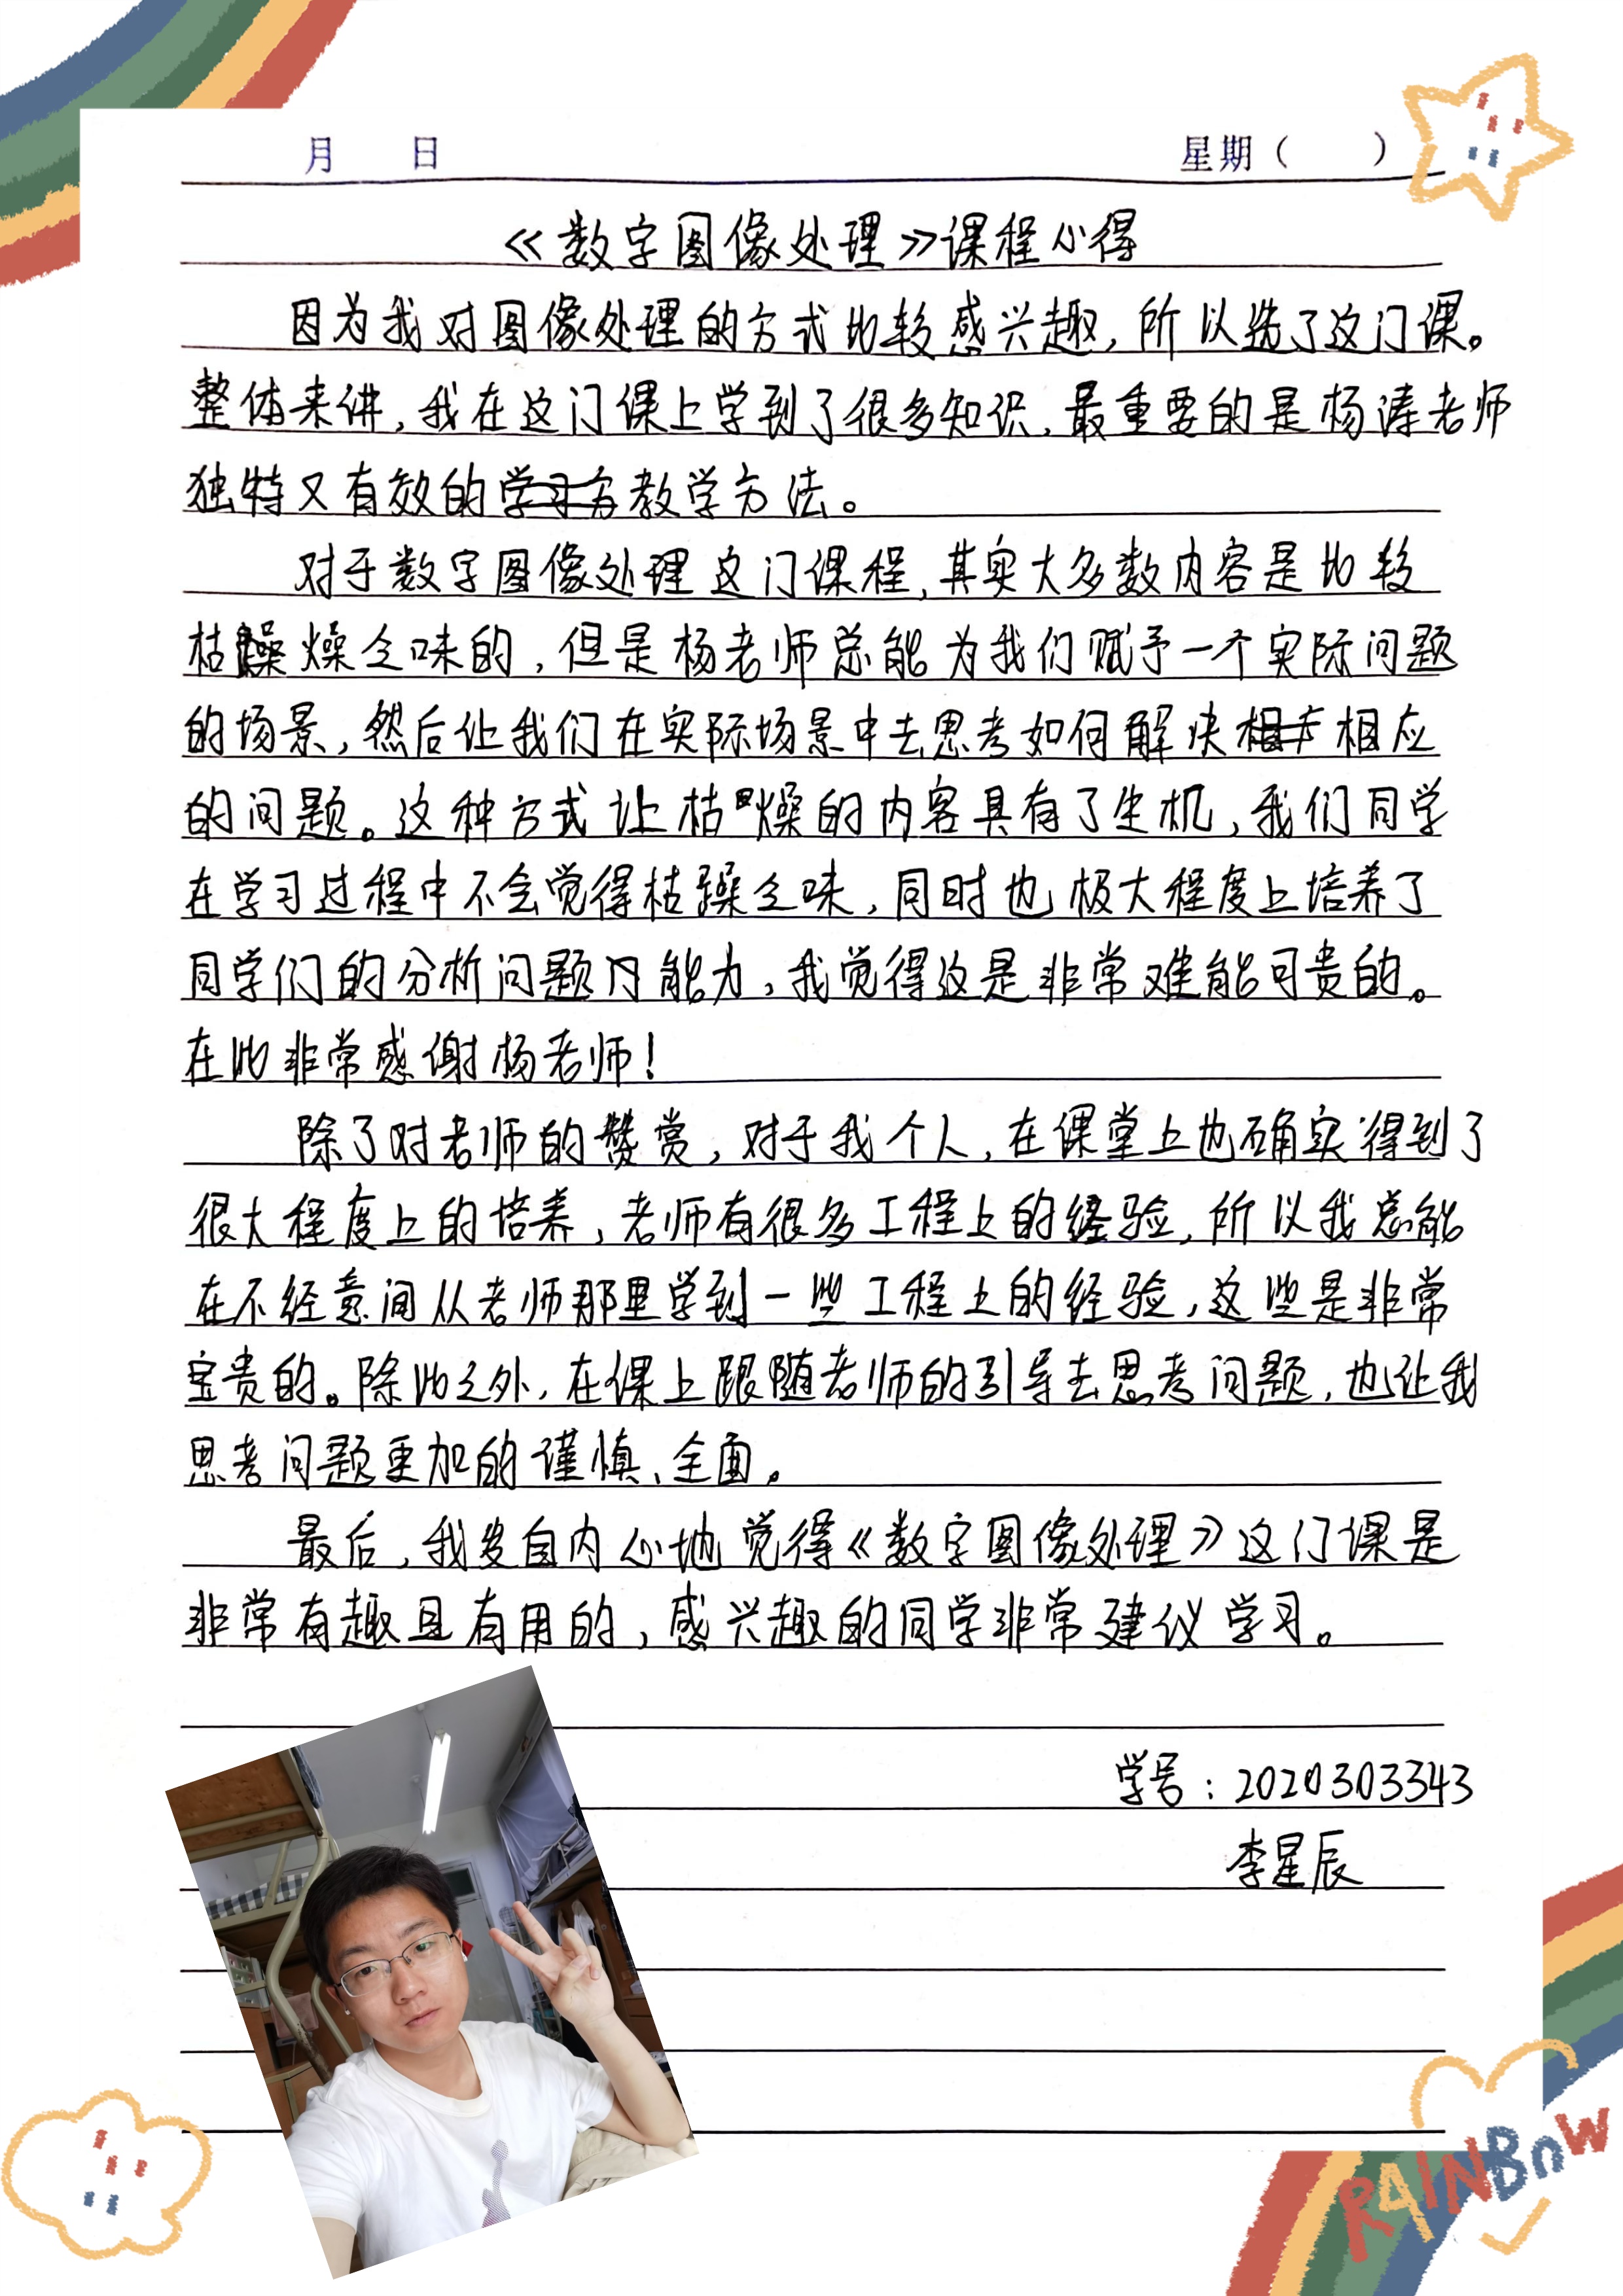 月 日 星期（ ）
《数字图像处理》课程心得
因为我对图像处理的方式比较感兴趣，所以选了这门课。
整体来讲，我在这门课上学到了很多知识，最重要的是杨涛老师
独特又有效的教学方法。
对于数字图像处理这门课程，其实大多数内容是比较
枯燥乏味的，但是杨老师总能为我们赋予一个实际问题
的场景，然后让我们在实际场景中去思考如何解决相应
的问题。这种方式让枯燥的内容具有了生机，我们同学
在学习过程中不会觉得枯躁乏味，同时也极大程度上培养了
同学们的分析问题的能力，我觉得这是非常难能可贵的。
在此非常感谢杨老师！
除了对老师的赞赏，对于我个人，在课堂上也确实得到了
很大程度上的培养，老师有很多工程上的经验，所以我总能
在不经意间从老师那里学到一些工程上的经验，这些是非常
宝贵的。除此之外，在课上跟随老师的引导去思考问题，也让我
思考问题更加的谨慎、全面。
最后，我发自内心地觉得《数字图像处理》这门课是
非常有趣且有用的，感兴趣的同学非常建议学习。
学号：2020303343
李星辰
RAINBOW